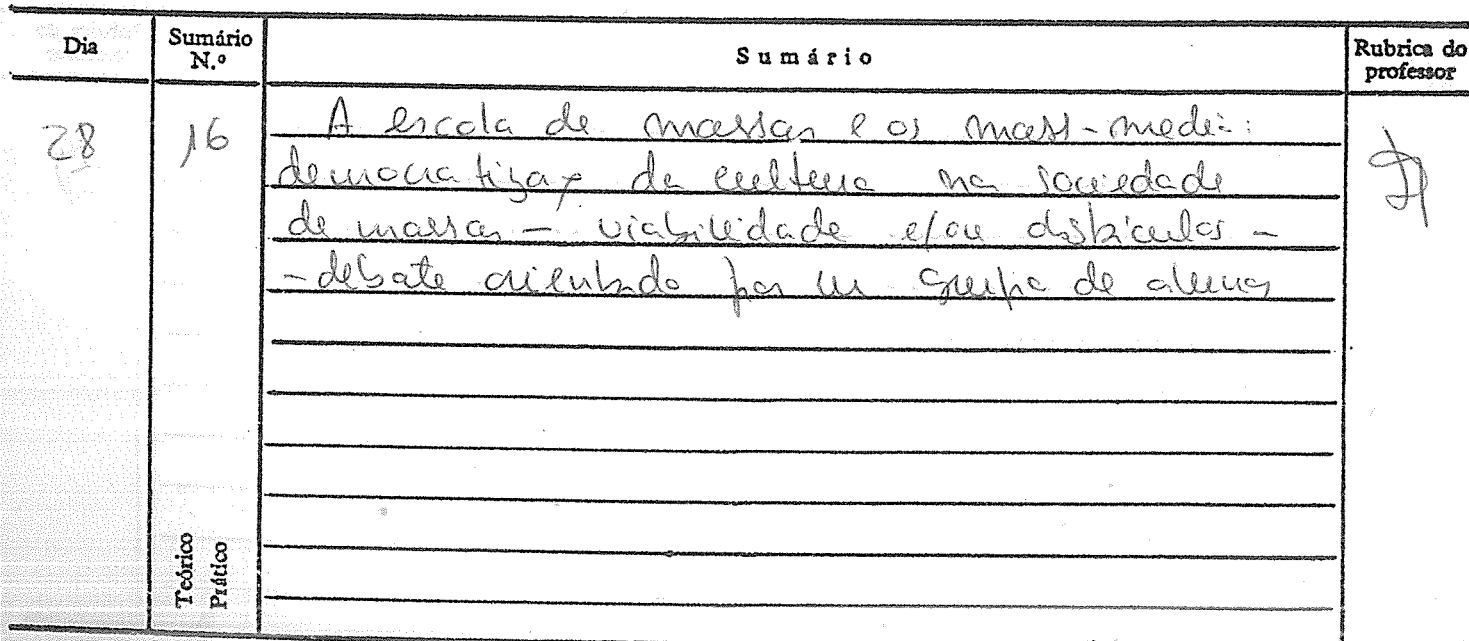 Dia
Sumário N.º
Sumário
Rubrica do professor
28
16
A escola de massas e os mass-media:
democratização da cultura na sociedade
de massas – viabilidade e/ou obstáculos –
- debate orientado por um grupo de alunos
Teórico
Prático